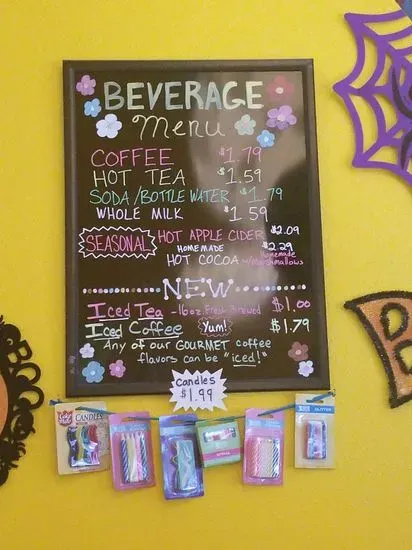 BEVERAGE
Menu
COFFEE $1.79
HOT TEA $1.59
SODA/BOTTLE WATER $1.79
WHOLE MILK $1.59
SEASONAL HOT APPLE CIDER $2.09
HOMEMADE $2.29
HOT COCOA w/Homemade Marshmallows
NEW
Iced Tea - 16oz. Fresh Brewed $1.00
Iced Coffee Yum! $1.79
Any of our GOURMET coffee
flavors can be "iced!"
Candles
$1.99
CANDLES
GLITTER
BOO
B